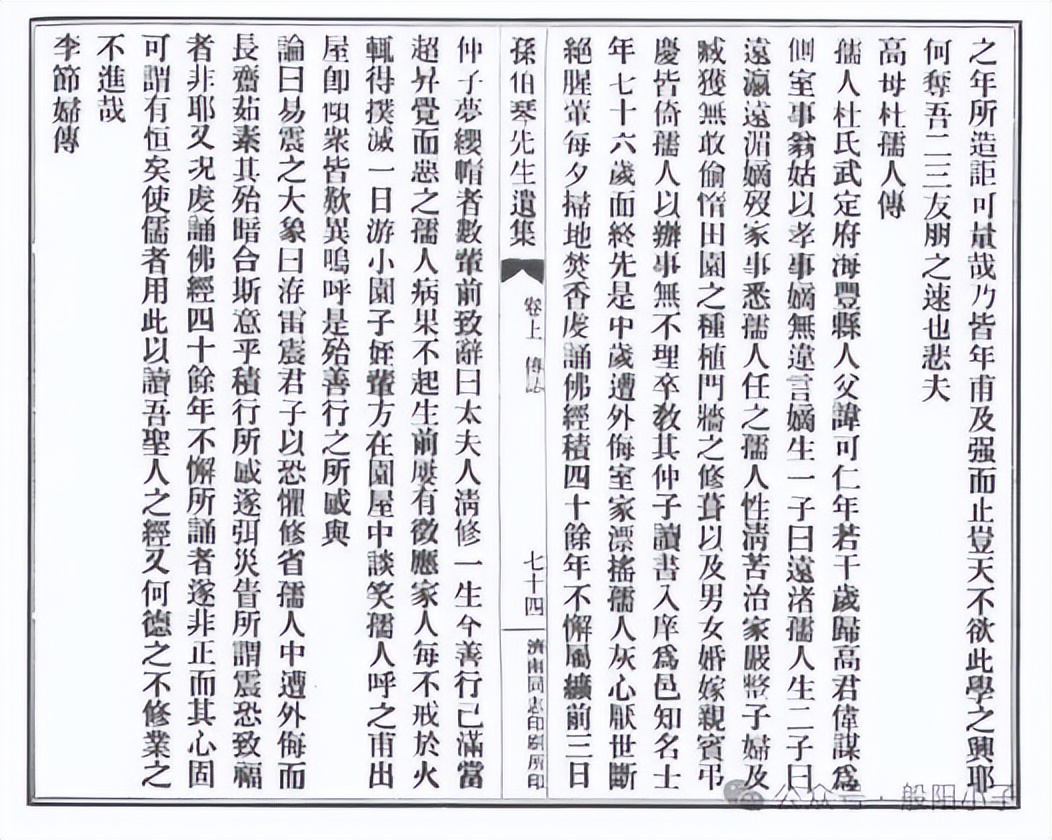 之年所造詎可量哉乃皆年甫及强而止豈天不欲此學之興耶
何奪吾二三友朋之速也悲夫
高母杜孺人傳
孺人杜氏武定府海豐縣人父諱可仁年若干歲歸高君偉謀爲
側室事翁姑以孝事嫡無違言嫡生一子曰遠渚孺人生二子曰
遠瀛遠湄嫡歿家事悉孺人任之孺人性清苦治家嚴整子婦及
臧獲無敢偷惰田園之種植門牆之修葺以及男女婚嫁親賓弔
慶皆倚孺人以辦事無不理卒教其仲子讀書入庠爲邑知名士
年七十六歲而終先是中歲遭外侮室家漂搖孺人灰心厭世斷
絕腥葷每夕掃地焚香虔誦佛經積四十餘年不懈屬纊前三日
孫伯琴先生遺集
卷上 傳誌
七十四
濟南同志印刷所印
仲子夢纓帽者數輩前致辭曰太夫人清修一生今善行已滿當
超昇覺而惡之孺人病果不起生前屢有徵應家人每不戒於火
輒得撲滅一日游小園子姪輩方在園屋中談笑孺人呼之甫出
屋卽傾衆皆歎異嗚呼是殆善行之所感與
論曰易震之大象曰洊雷震君子以恐懼修省孺人中遭外侮而
長齋茹素其殆暗合斯意乎積行所感遂弭災眚所謂震恐致福
者非耶又况虔誦佛經四十餘年不懈所誦者遂非正而其心固
可謂有恒矣使儒者用此以讀吾聖人之經又何德之不修業之
不進哉
李節婦傳
公众号·般阳小子